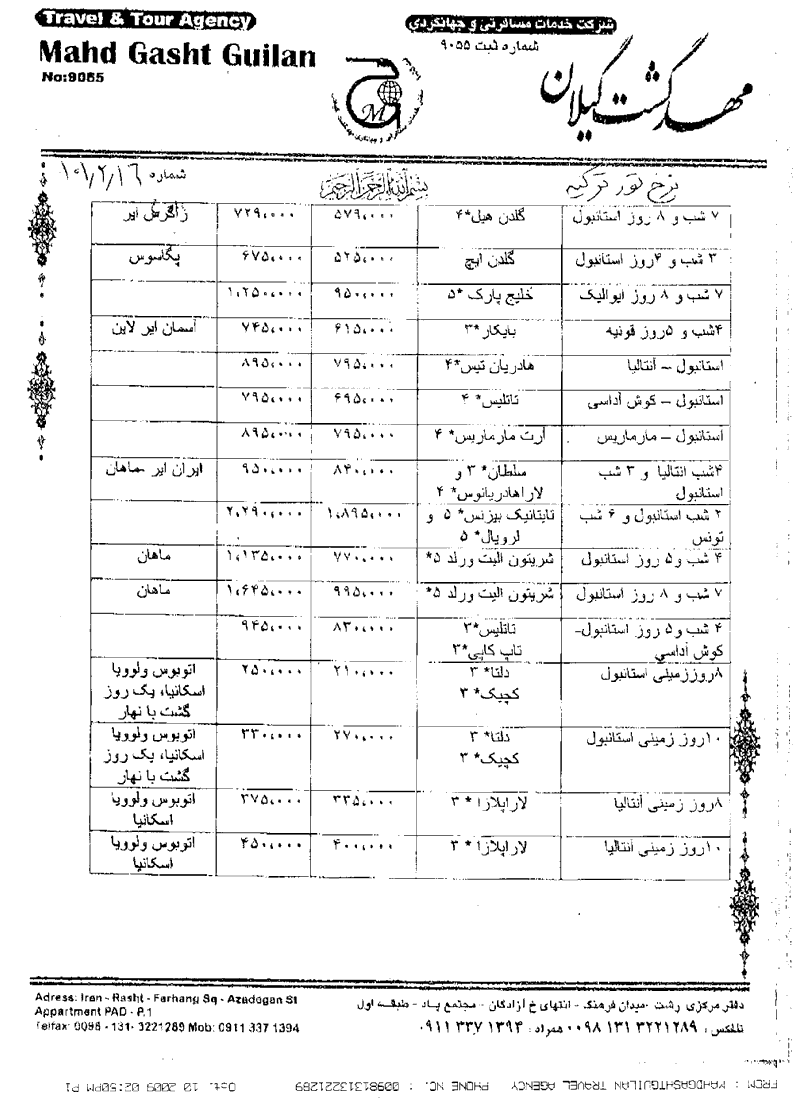 Travel & Tour Agency
Mahd Gasht Guilan
No:9065
شرکت خدمات مسافرتی و جهانگردی
شماره ثبت ۹۰۵۵
مهد گشت گیلان
بسم الله الرحمن الرحیم
شماره ۱۰۱/۲/۱۶
نرخ تور ترکیه
۷ شب و ۸ روز استانبول گلدن هیل*۴ ۵۷۹،۰۰۰ ۷۲۹،۰۰۰ زاگرس ایر
۳ شب و ۴روز استانبول گلدن ایچ ۵۲۵،۰۰۰ ۶۷۵،۰۰۰ پگاسوس
۷ شب و ۸ روز ایوالیک خلیج پارک *۵ ۹۵۰،۰۰۰ ۱،۲۵۰،۰۰۰
۴شب و ۵روز قونیه بایکار*۳ ۶۱۵،۰۰۰ ۷۴۵،۰۰۰ آسمان ایر لاین
استانبول – آنتالیا هادریان تیس*۴ ۷۹۵،۰۰۰ ۸۹۵،۰۰۰
استانبول – کوش آداسی تاتلیس* ۴ ۶۹۵،۰۰۰ ۷۹۵،۰۰۰
استانبول – مارماریس آرت مارماریس* ۴ ۷۹۵،۰۰۰ ۸۹۵،۰۰۰
۴شب انتالیا و ۳ شب سلطان* ۳ و ۸۴۰،۰۰۰ ۹۵۰،۰۰۰ ایران ایر -ماهان
استانبول لاراهادریانوس* ۴
۲ شب استانبول و ۶ شب تایتانیک بیزنس* ۵ و ۱،۸۹۵،۰۰۰ ۲،۲۹۰،۰۰۰
تونس لرویال* ۵
۴ شب و۵ روز استانبول شریتون الیت ورلد ۵* ۷۷۰،۰۰۰ ۱،۱۳۵،۰۰۰ ماهان
۷ شب و ۸ روز استانبول شریتون الیت ورلد ۵* ۹۹۵،۰۰۰ ۱،۶۴۵،۰۰۰ ماهان
۴ شب و۵ روز استانبول- تاتلیس*۳ ۸۳۰،۰۰۰ ۹۴۵،۰۰۰
کوش آداسی تاپ کاپی*۳
۸روززمینی استانبول دلتا* ۳ ۲۱۰،۰۰۰ ۲۵۰،۰۰۰ اتوبوس ولوویا
کچیک* ۳ اسکانیا، یک روز
گشت با نهار
۱۰روز زمینی استانبول دلتا* ۳ ۲۷۰،۰۰۰ ۳۳۰،۰۰۰ اتوبوس ولوویا
کچیک* ۳ اسکانیا، یک روز
گشت با نهار
۸روز زمینی آنتالیا لاراپلازا * ۳ ۳۳۵،۰۰۰ ۳۷۵،۰۰۰ اتوبوس ولوویا
اسکانیا
۱۰روز زمینی آنتالیا لاراپلازا * ۳ ۴۰۰،۰۰۰ ۴۵۰،۰۰۰ اتوبوس ولوویا
اسکانیا
Adress: Iran - Rasht - Farhang Sq - Azadegan St
Appartment PAD - P.1
Telfax: 0098 - 131- 3221289 Mob: 0911 337 1394
دفتر مرکزی رشت -میدان فرهنگ - انتهای خ آزادگان - مجتمع پاد - طبقه اول
تلفکس : ۰۰۹۸ ۱۳۱ ۳۲۲۱۲۸۹ همراه : ۰۹۱۱ ۳۳۷ ۱۳۹۴
FROM : MAHDGASHTGUILAN TRAVEL AGENCY PHONE NO. : 00981313221289 Oct. 10 2009 02:50PM P1